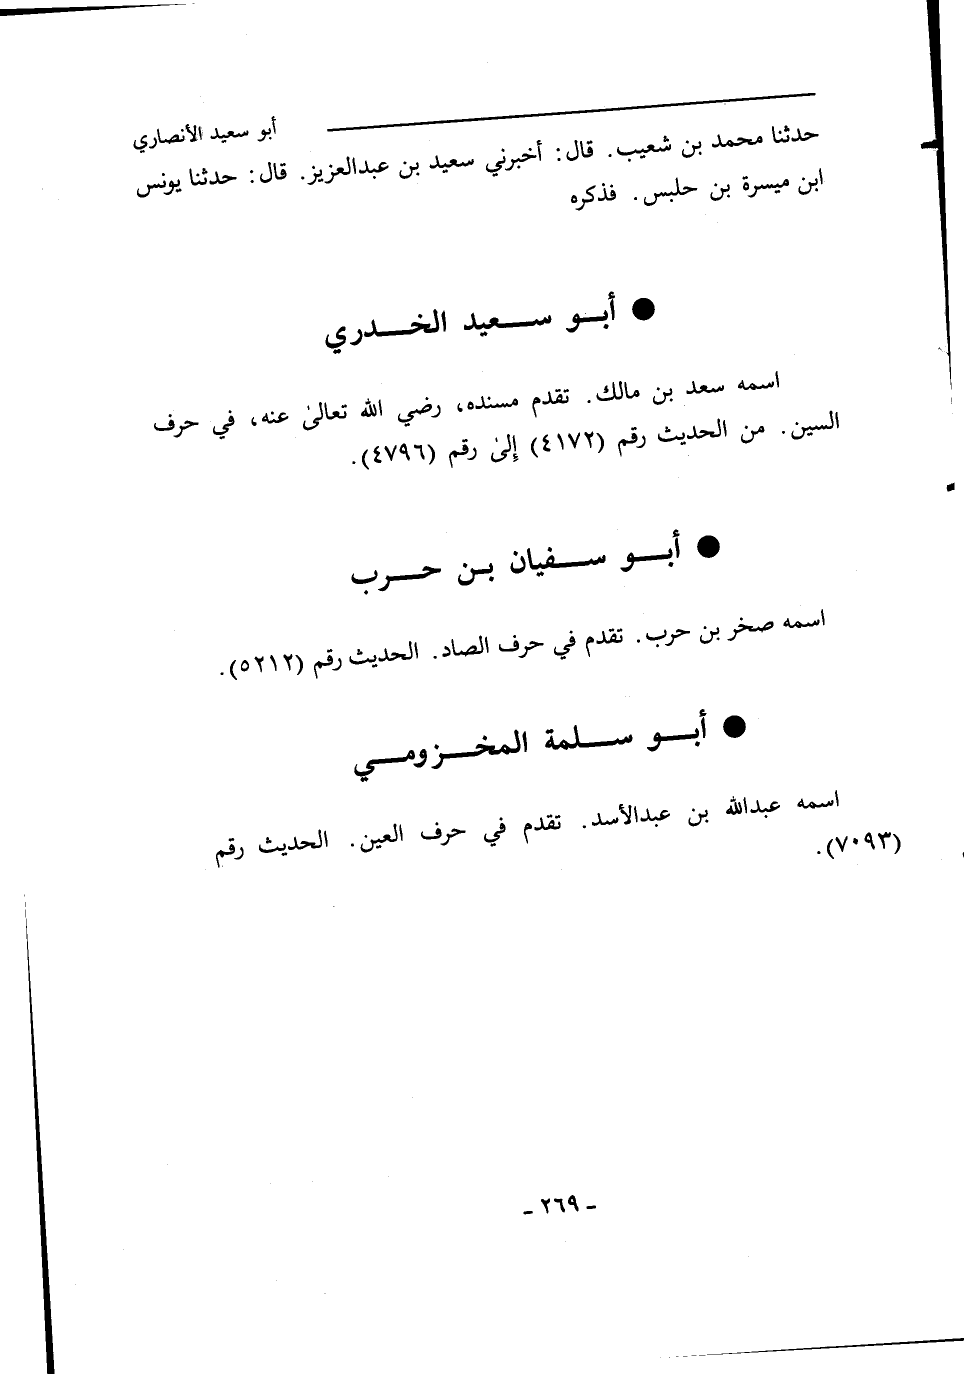 أبو سعيد الأنصاري
حدثنا محمد بن شعيب. قال: أخبرني سعيد بن عبدالعزيز. قال: حدثنا يونس
ابن ميسرة بن حلبس. فذكره
● أبـو ســعيد الخــدري
اسمه سعد بن مالك. تقدم مسنده، رضي الله تعالىٰ عنه، في حرف
السين. من الحديث رقم (٤١٧٢) إلىٰ رقم (٤٧٩٦).
● أبــو ســفيان بـن حــرب
اسمه صخر بن حرب. تقدم في حرف الصاد. الحديث رقم (٥٢١٢).
● أبــو ســلمة المخــزومــي
اسمه عبدالله بن عبدالأسد. تقدم في حرف العين. الحديث رقم
(٧٠٩٣).
- ٢٦٩ -